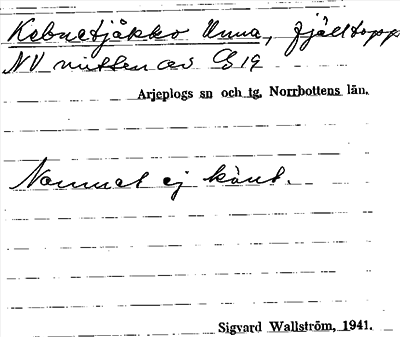 Kebnetjåkko Unna, fjälltopp
NV mitten av C 19
Arjeplogs sn och tg. Norrbottens län.
Namnet ej känt.
Sigvard Wallström, 1941.